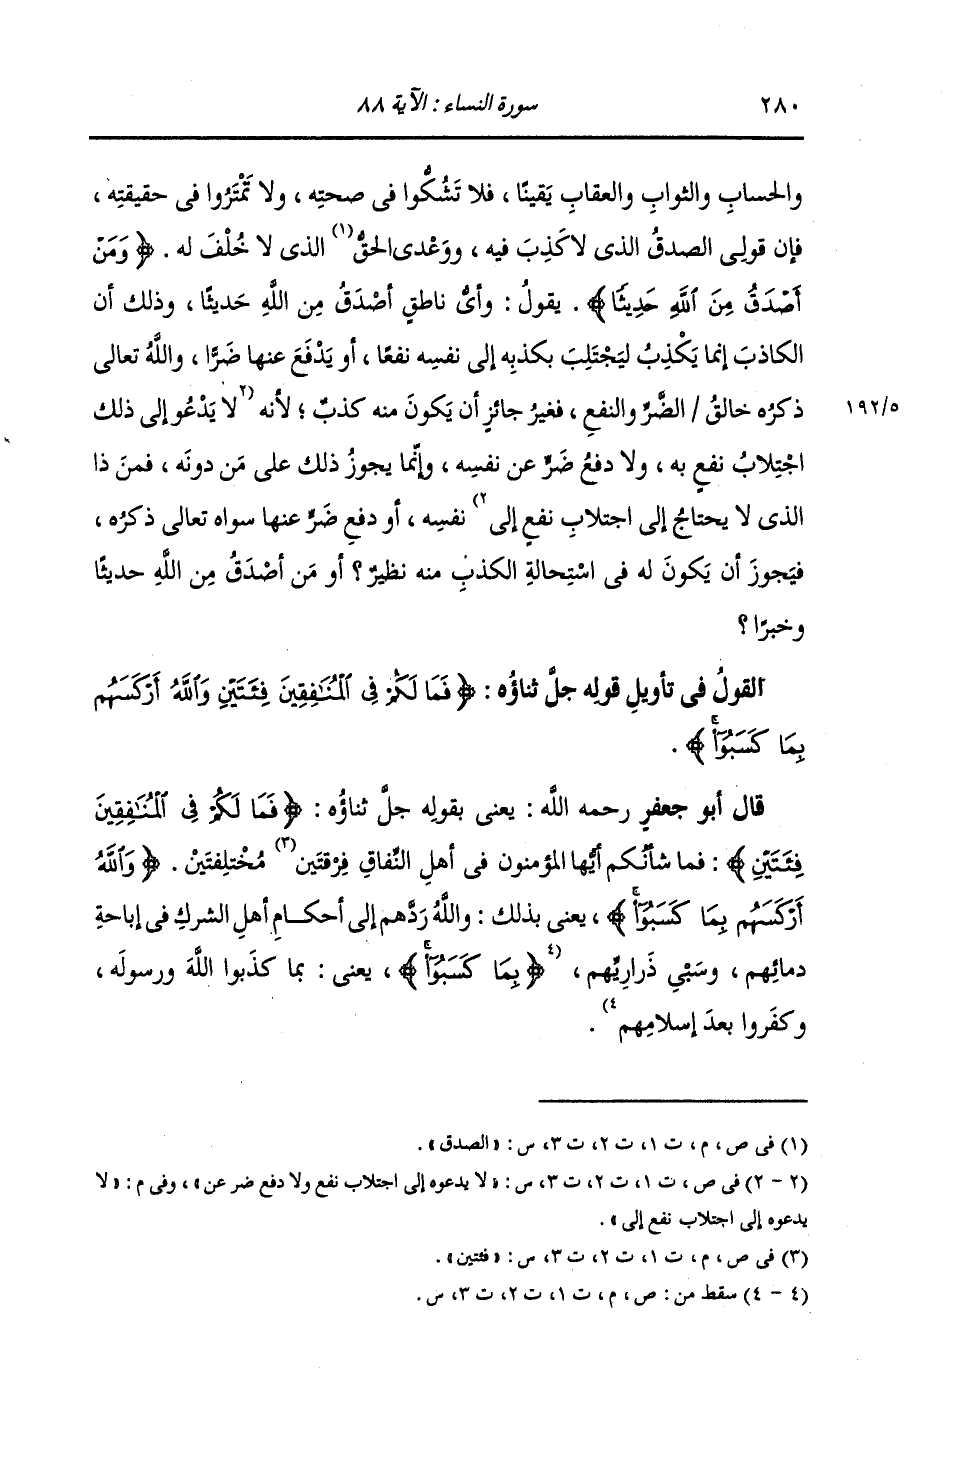 ٢٨٠ سورة النساء : الآية ٨٨
والحسابِ والثوابِ والعقابِ يَقينًا ، فلا تَشُكُّوا فى صحتِه ، ولا تَمْتَرُوا فى حقيقتِه ،
فإن قولِى الصدقُ الذى لا كَذِبَ فيه ، ووَعْدى الحقُّ(١) الذى لا خُلْفَ له . ﴿ وَمَنْ
أَصْدَقُ مِنَ ٱللَّهِ حَدِيثًا﴾ . يقولُ : وأىُّ ناطقٍ أصْدَقُ مِن اللَّهِ حَديثًا ، وذلك أن
الكاذبَ إنما يَكْذِبُ ليَجْتَلِبَ بكذبِه إلى نفسِه نفعًا ، أو يَدْفَعَ عنها ضَرًّا ، واللَّهُ تعالى
ذكرُه خالقُ / الضَّرِّ والنفعِ ، فغيرُ جائزٍ أن يَكونَ منه كذبٌ ؛ لأنه (٢لا يَدْعُو إلى ذلك
١٩٢/٥
اجْتِلابُ نفعٍ به ، ولا دفعُ ضَرٍّ عن نفسِه ، وإنَّما يجوزُ ذلك على مَن دونَه ، فمنَ ذا
الذى لا يحتاجُ إلى اجتلابِ نفعٍ إلى٢) نفسِه ، أو دفعِ ضَرٍّ عنها سواه تعالى ذكرُه ،
فيَجوزَ أن يَكونَ له فى اسْتِحالةِ الكذبِ منه نظيرٌ ؟ أو مَن أصْدَقُ مِن اللَّهِ حديثًا
وخبرًا ؟
القولُ فى تأويلِ قولِه جلَّ ثناؤُه : ﴿ فَمَا لَكُمْ فِى ٱلْمُنَٰفِقِينَ فِئَتَيْنِ وَٱللَّهُ أَرْكَسَهُم
بِمَا كَسَبُوٓا۟ۚ ﴾ .
قال أبو جعفرٍ رحمه اللَّه : يعنى بقولِه جلَّ ثناؤُه : ﴿ فَمَا لَكُمْ فِى ٱلْمُنَٰفِقِينَ
فِئَتَيْنِ ﴾ : فما شأنُكم أيُّها المؤمنون فى أهلِ النِّفاقِ فِرْقتَين(٣) مُخْتلِفتَيْن . ﴿ وَٱللَّهُ
أَرْكَسَهُم بِمَا كَسَبُوٓا۟ۚ ﴾ ، يعنى بذلك : واللَّهُ رَدَّهم إلى أحكامِ أهلِ الشركِ فى إباحةِ
دمائِهم ، وسَبْىِ ذَراريِّهم ، (٤﴿ بِمَا كَسَبُوٓا۟ۚ ﴾ ، يعنى : بما كذَبوا اللَّهَ ورسولَه ،
وكفَروا بعدَ إسلامِهم٤) .
(١) فى ص ، م ، ت ١، ت ٢، ت ٣، س : « الصدق » .
(٢ - ٢) فى ص ، ت ١، ت ٢، ت ٣، س : « لا يدعوه إلى اجتلاب نفع ولا دفع ضر عن » ، وفى م : « لا
يدعوه إلى اجتلاب نفع إلى » .
(٣) فى ص ، م ، ت ١، ت ٢، ت ٣، س : « فئتين » .
(٤ - ٤) سقط من : ص ، م ، ت ١، ت ٢، ت ٣، س .